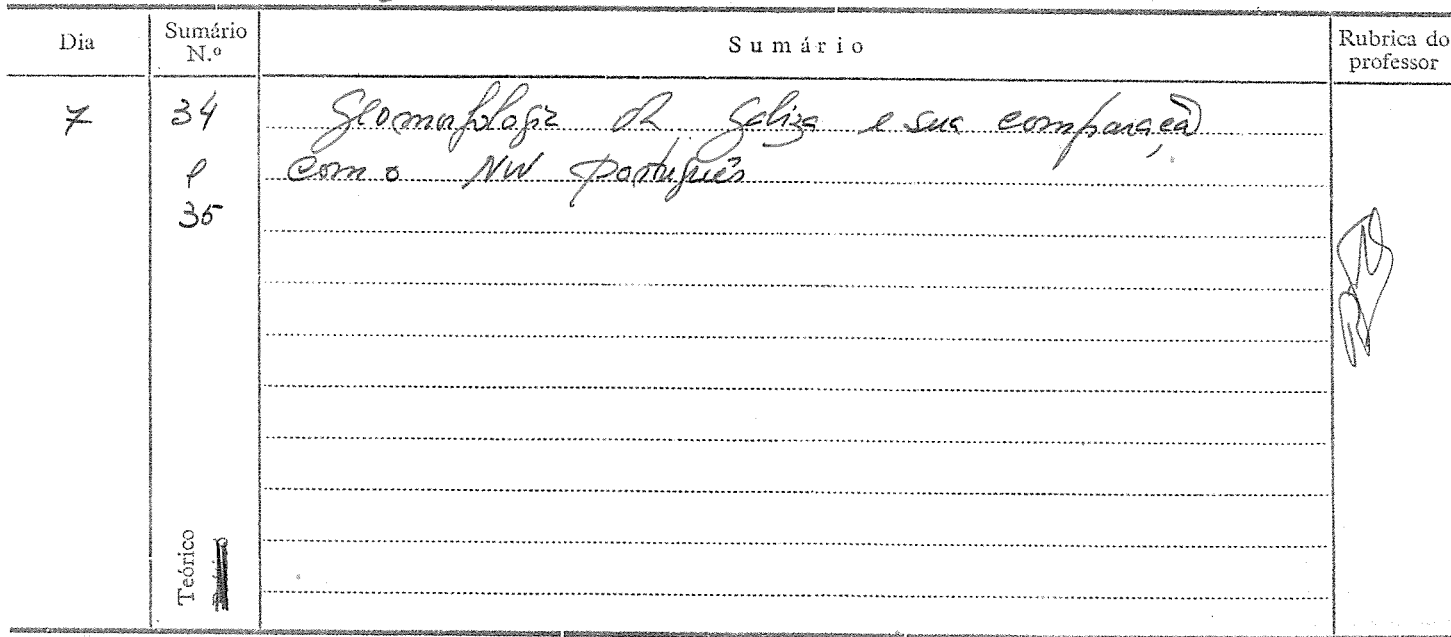 Dia
Sumário N.º
Sumário
Rubrica do professor
7
34
e
35
Geomorfologia da Galiza e sua comparação
com o NW português
Teórico